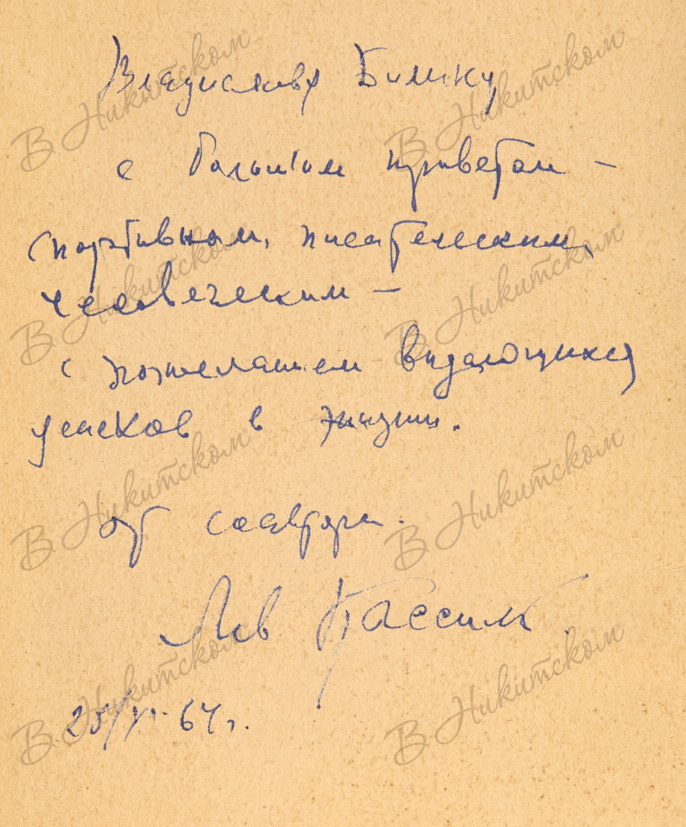 Владиславу Билику
с большим приветом —
спортивном, писательским,
человеческим —
с пожеланием выдающихся
успехов в жизни.
от соавтора.
Лев Кассиль
25/VI-64 г.
В Никитском
В Никитском
В Никитском
В Никитском
В Никитском
В Никитском
В Никитском
В Никитском